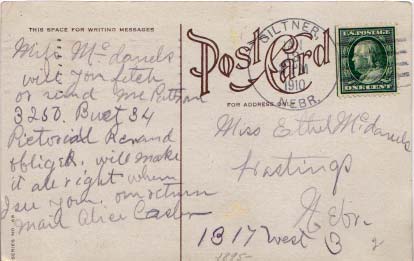 THIS SPACE FOR WRITING MESSAGES
Miss McDaniels
will you fetch
or send me Pattern
3250. Bust 34
Pictorial Rev and
oblige, will make
it all right when
I see you. on return
mail Alice
Post Card
FOR ADDRESS ONLY
GILTNER,
1910
NEBR.
U.S. POSTAGE
ONE CENT
Miss Ethel McDaniels
Hastings
Nebr.
1317 West B
1895-
2
SERIES NO.